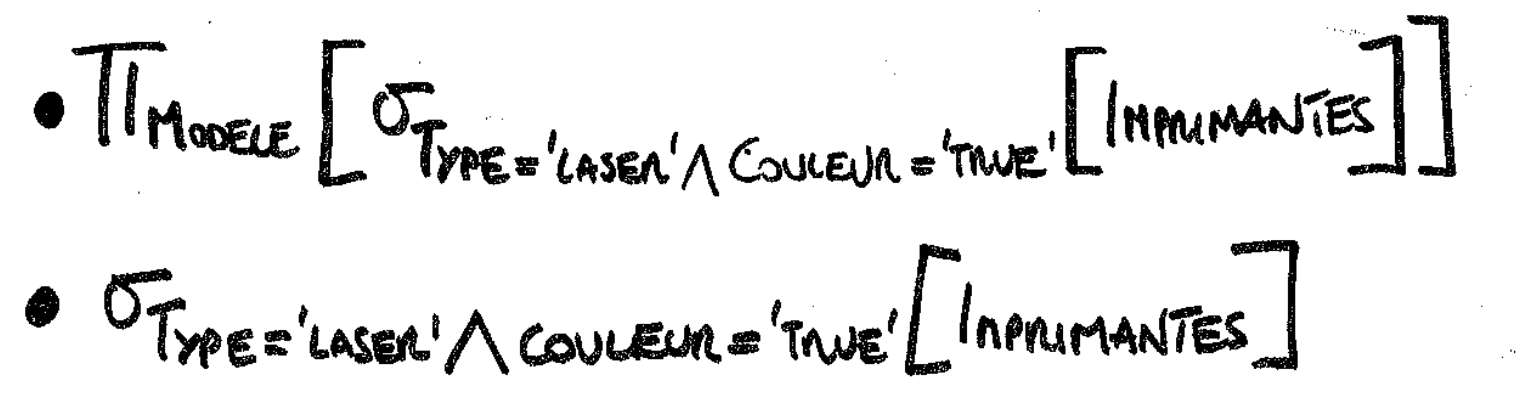 • Π MODELE [ σ TYPE='LASER' ∧ COULEUR='TRUE' [IMPRIMANTES]]
• σ TYPE='LASER' ∧ COULEUR='TRUE' [IMPRIMANTES]